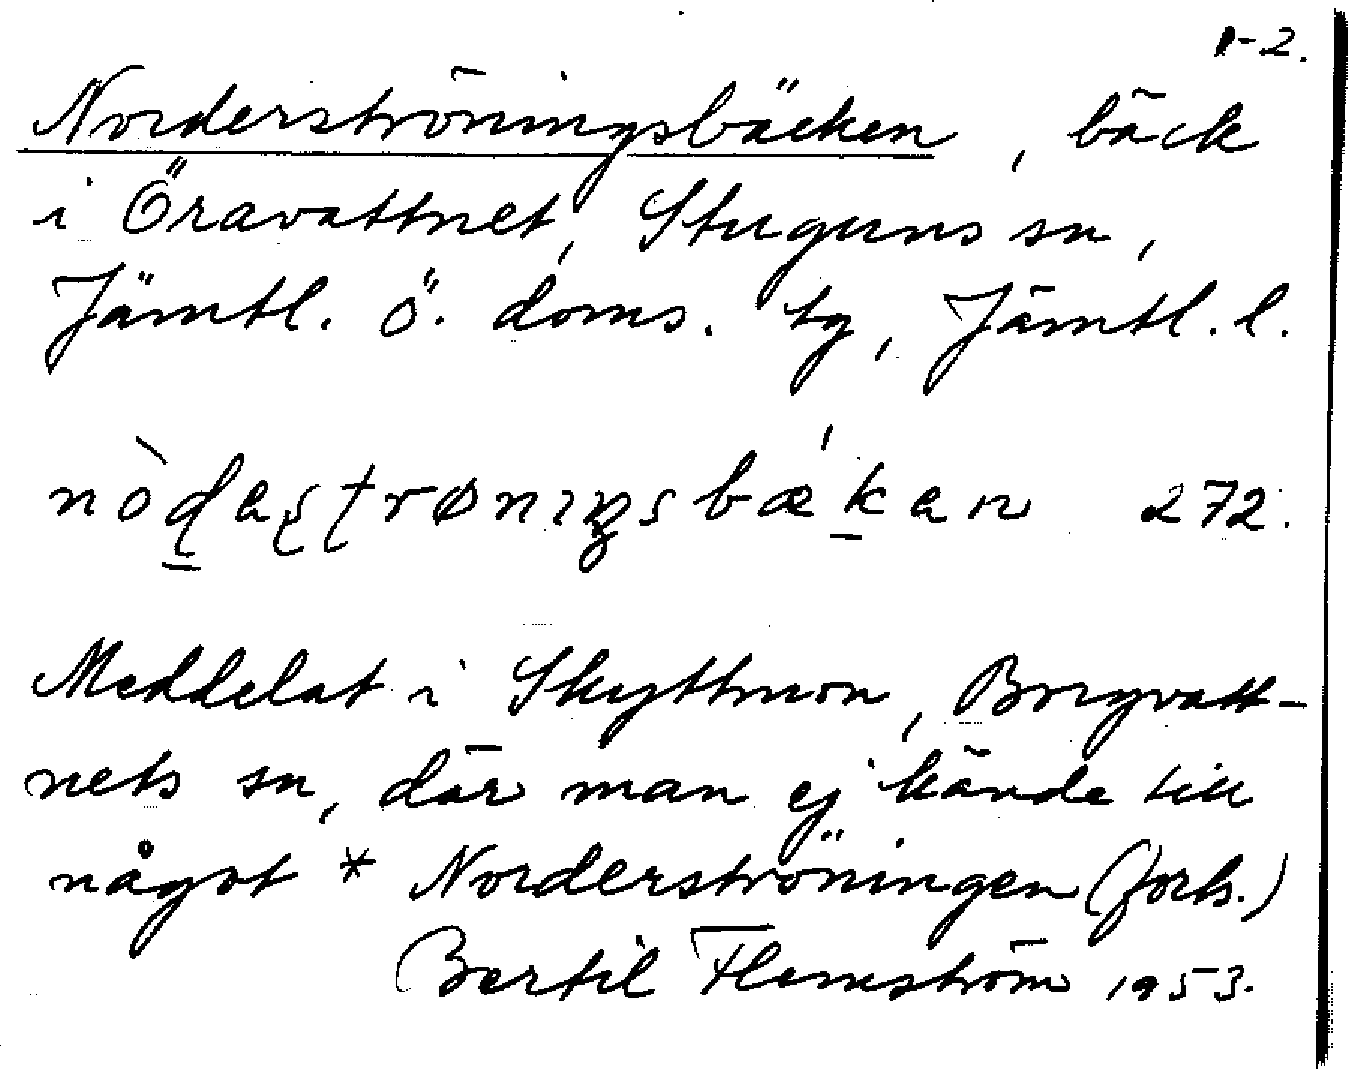 1-2.
Norderströningsbäcken, bäck
i Öravattnet, Stuguns sn,
Jämtl. ö. doms. tg, Jämtl. l.
272.
Meddelat i Skyttmon, Borgvatt-
nets sn, där man ej kände till
något * Norderströningen (forts.)
Bertil Flemström 1953.